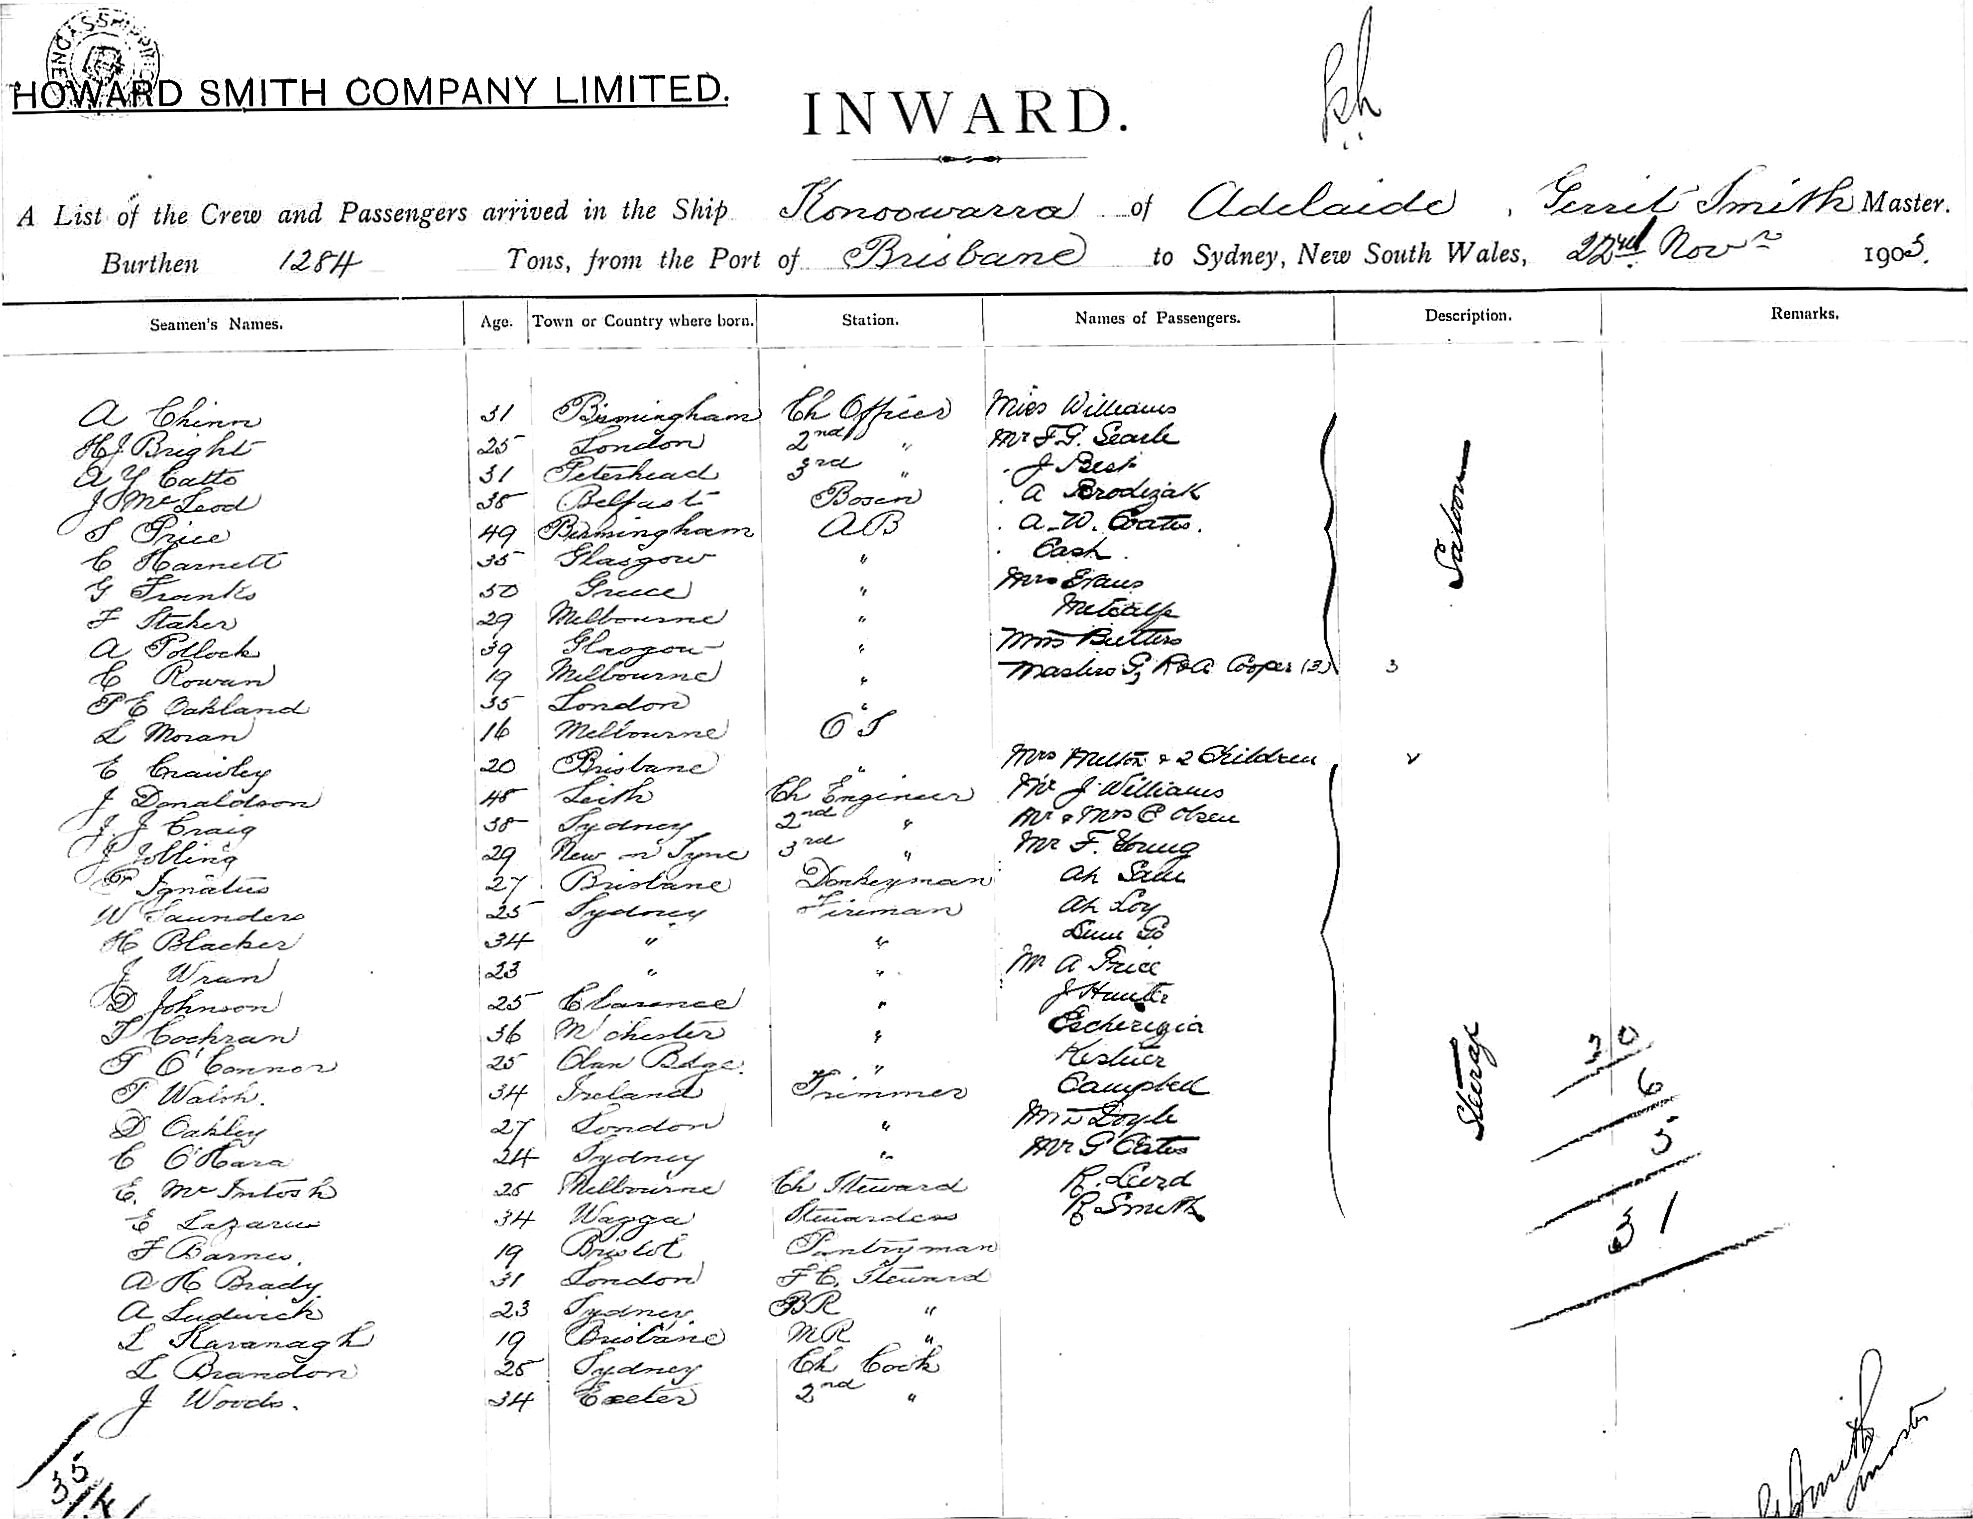 HOWARD SMITH COMPANY LIMITED.
INWARD.
A List of the Crew and Passengers arrived in the Ship Konoowarra of Adelaide, Gerrit Smith Master.
Burthen 1284 Tons, from the Port of Brisbane to Sydney, New South Wales, 22nd Novr 1903.
Seamen's Names. Age. Town or Country where born. Station. Names of Passengers. Description. Remarks.
A Chinn 31 Birmingham Ch Officer Miss Williams
H J Bright 25 London 2nd " Mr F. G. Searle
A Y Catto 31 Peterhead 3rd " J Best
J McLeod 38 Belfast Bosen A Brodziak
S Price 49 Birmingham AB A. W. Coates.
C Harnett 35 Glasgow " Cash Saloon
G Franks 50 Greece " Mrs Evans
F Staker 29 Melbourne " Metcalfe
A Pollock 39 Glasgow " Miss Butters
C Rowan 19 Melbourne " Masters G, R & A Cooper (3) 3
P E Oakland 35 London "
L Moran 16 Melbourne OS
E Crawley 20 Brisbane " Mrs Melton & 2 Children
J Donaldson 48 Leith Ch Engineer Mr J Williams
J. J Craig 38 Sydney 2nd " Mr & Mrs C Olsen
J Jolling 29 New on Tyne 3rd " Mr F. Young
P Ignatius 27 Brisbane Donkeyman Ah Sam
W Saunders 25 Sydney Fireman Ah Loy
H Blacker 34 " "
J Wran 23 " " Mr A Price
D Johnson 25 Clarence " J Hunter
T Cochran 36 M'chester "
T O'Connor 25 Bdge. "
T Walsh. 34 Ireland Trimmer Campbell Steerage
D Oakley 27 London " Doyle
C O'Hara 24 Sydney " Mr G Oates
E. McIntosh 25 Melbourne Ch Steward R.
E Lazarus 34 Wagga Stewardess R Smith
F Barnes. 19 Bristol Pantryman
A H Brady. 31 London F C. Steward
A Ludwick 23 Sydney. BR "
L Kavanagh 19 Brisbane MR "
L Brandon 25 Sydney Ch Cook
J Woods. 34 Exeter 2nd "
20
6
5
31
35
G Smith
Master